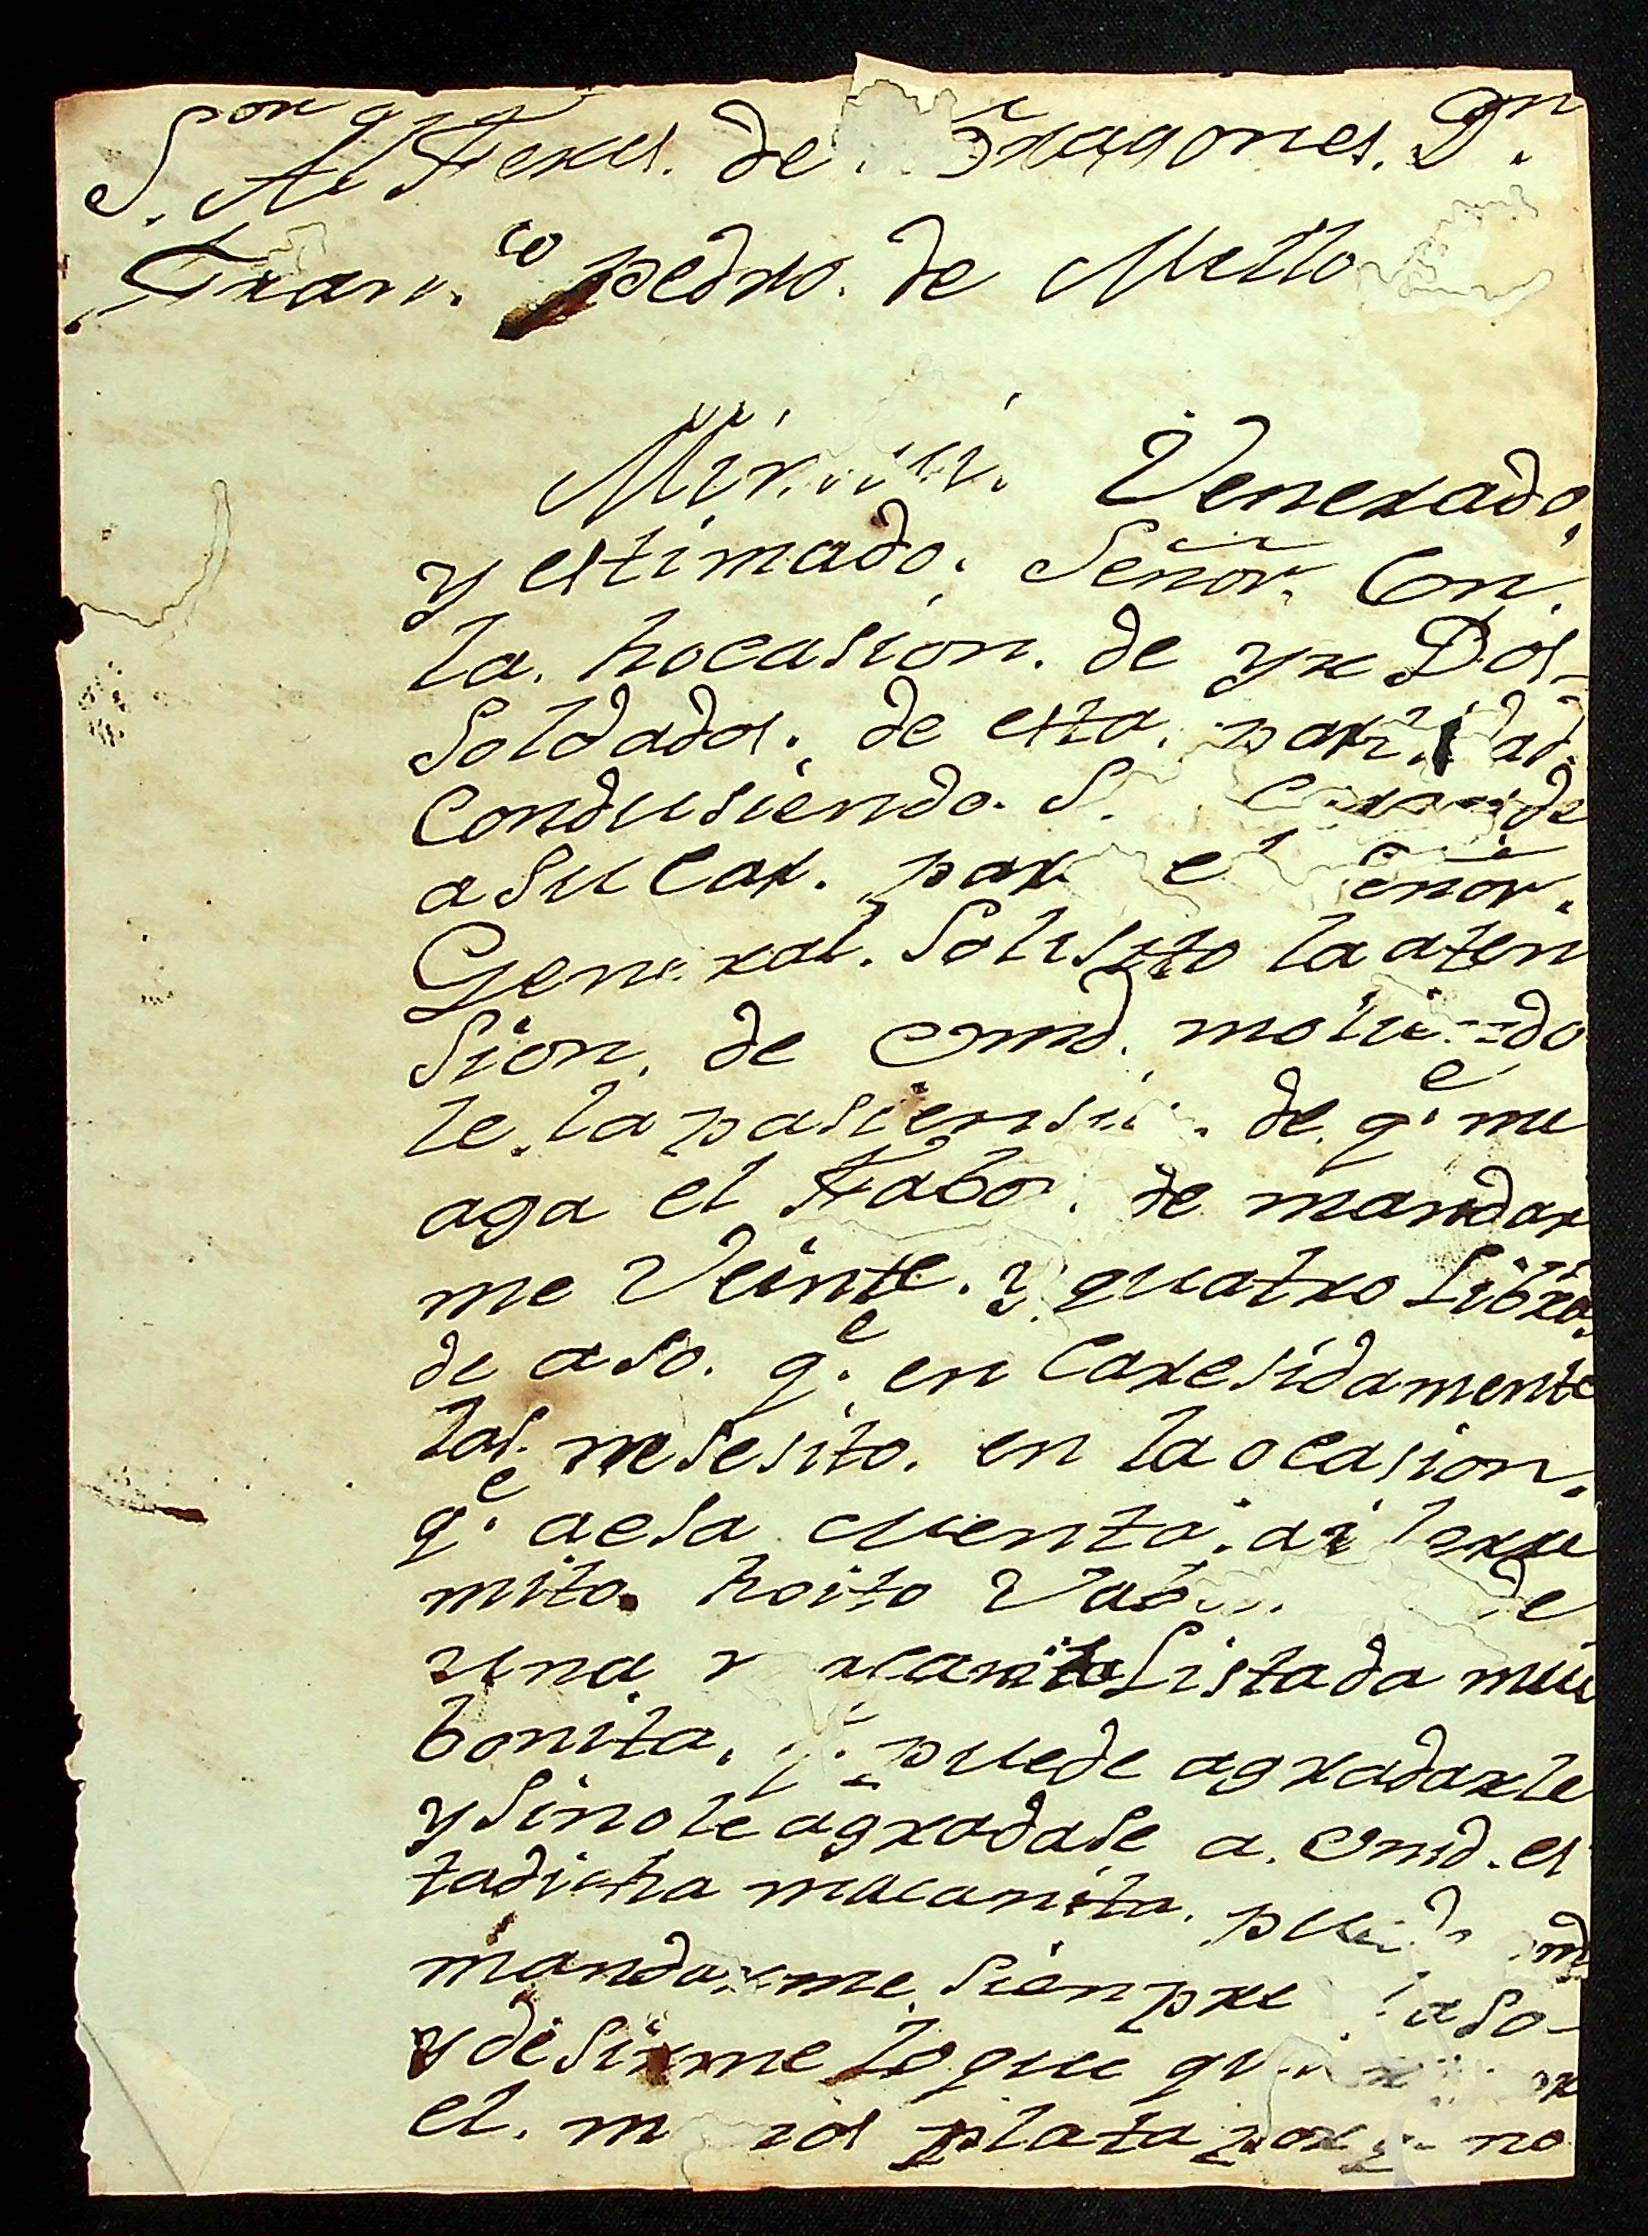 S.or Alferes. de Dragones. D.n
Fran.co pedro. de Mello
Venerado,
y estimado. Señor. Con.
la. hocasion. de yr Dos
Soldados. de esta.
Condusiendo. S. de
asucar. para el Señor.
General. Solisito la aten
sion. de vmd.
le. la pasiensia. de. q.e me
aga el Fabor. de mandar
me Veinte. y quatro Libras
de aso. q.e en Caresidamente
las. nesesito. en la ocasion.
q.e a esa cuenta. ai le rre
mito. hoito de
una. macanita Listada mui
bonita. q.e puede agradarle
y Sino le agradase a. vmd. es
ta dicha macanita. puede vmd
mandarme. Sienpre el aso
y desirme lo que por
el. menos plata por q.e no